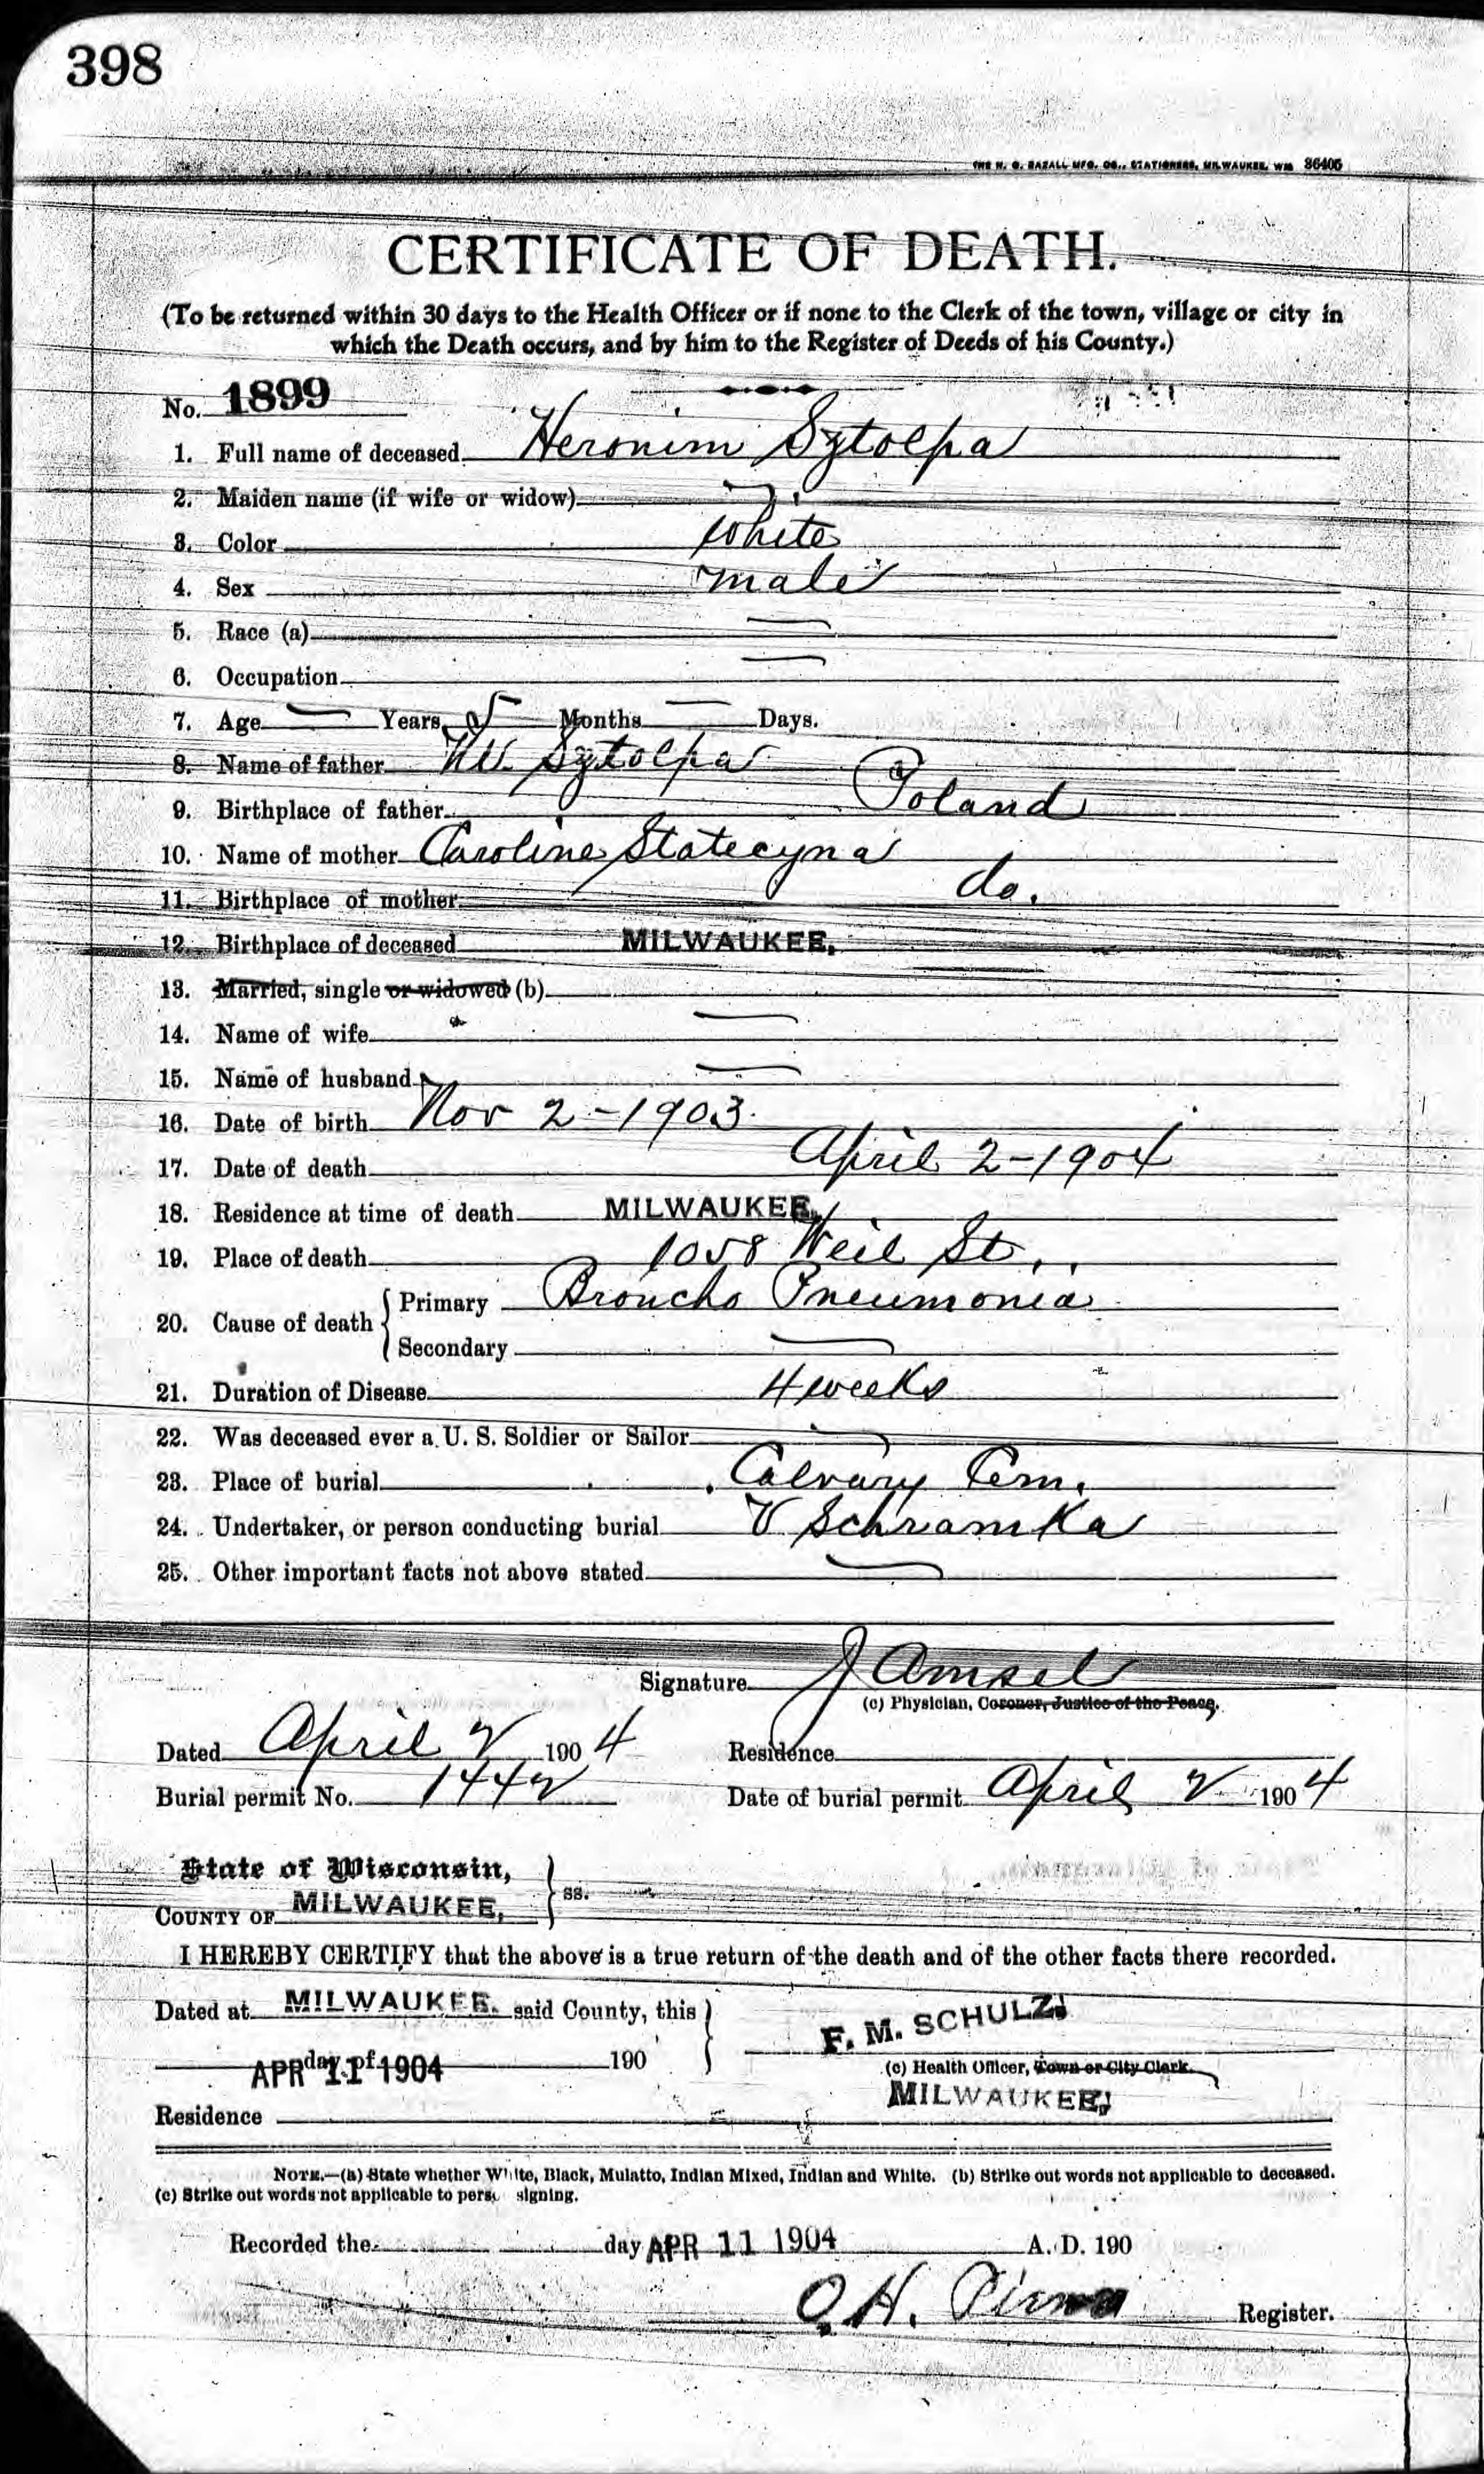 398
THE H. G. RAZALL MFG. CO., STATIONERS, MILWAUKEE, WIS 36405
CERTIFICATE OF DEATH.
(To be returned within 30 days to the Health Officer or if none to the Clerk of the town, village or city in
which the Death occurs, and by him to the Register of Deeds of his County.)
No. 1899
1. Full name of deceased Heronim Sztolpa
2. Maiden name (if wife or widow)
3. Color white
4. Sex male
5. Race (a)
6. Occupation
7. Age — Years 5 Months — Days.
8. Name of father Sztolpa
9. Birthplace of father Poland
10. Name of mother Caroline Statecyna
11. Birthplace of mother do.
12. Birthplace of deceased MILWAUKEE,
13. Married, single or widowed (b)
14. Name of wife —
15. Name of husband —
16. Date of birth Nov 2-1903.
17. Date of death April 2-1904
18. Residence at time of death MILWAUKEE,
19. Place of death 1058 Weil St.,
20. Cause of death { Primary Broncho Pneumonia
Secondary —
21. Duration of Disease 4 weeks
22. Was deceased ever a U. S. Soldier or Sailor
23. Place of burial Calvary Cem.
24. Undertaker, or person conducting burial V Schramka
25. Other important facts not above stated
Signature J Amsel
(c) Physician, Coroner, Justice of the Peace.
Dated April 2 1904 Residence
Burial permit No. 1442 Date of burial permit April 2 1904
State of Wisconsin, } ss.
COUNTY OF MILWAUKEE,
I HEREBY CERTIFY that the above is a true return of the death and of the other facts there recorded.
Dated at MILWAUKEE. said County, this } F. M. SCHULZ,
APR 11 1904 day of 190 (c) Health Officer, Town or City Clerk.
MILWAUKEE,
Residence
NOTE.—(a) State whether White, Black, Mulatto, Indian Mixed, Indian and White. (b) Strike out words not applicable to deceased.
(c) Strike out words not applicable to pers signing.
Recorded the day APR 11 1904 A. D. 190
O.H. Register.